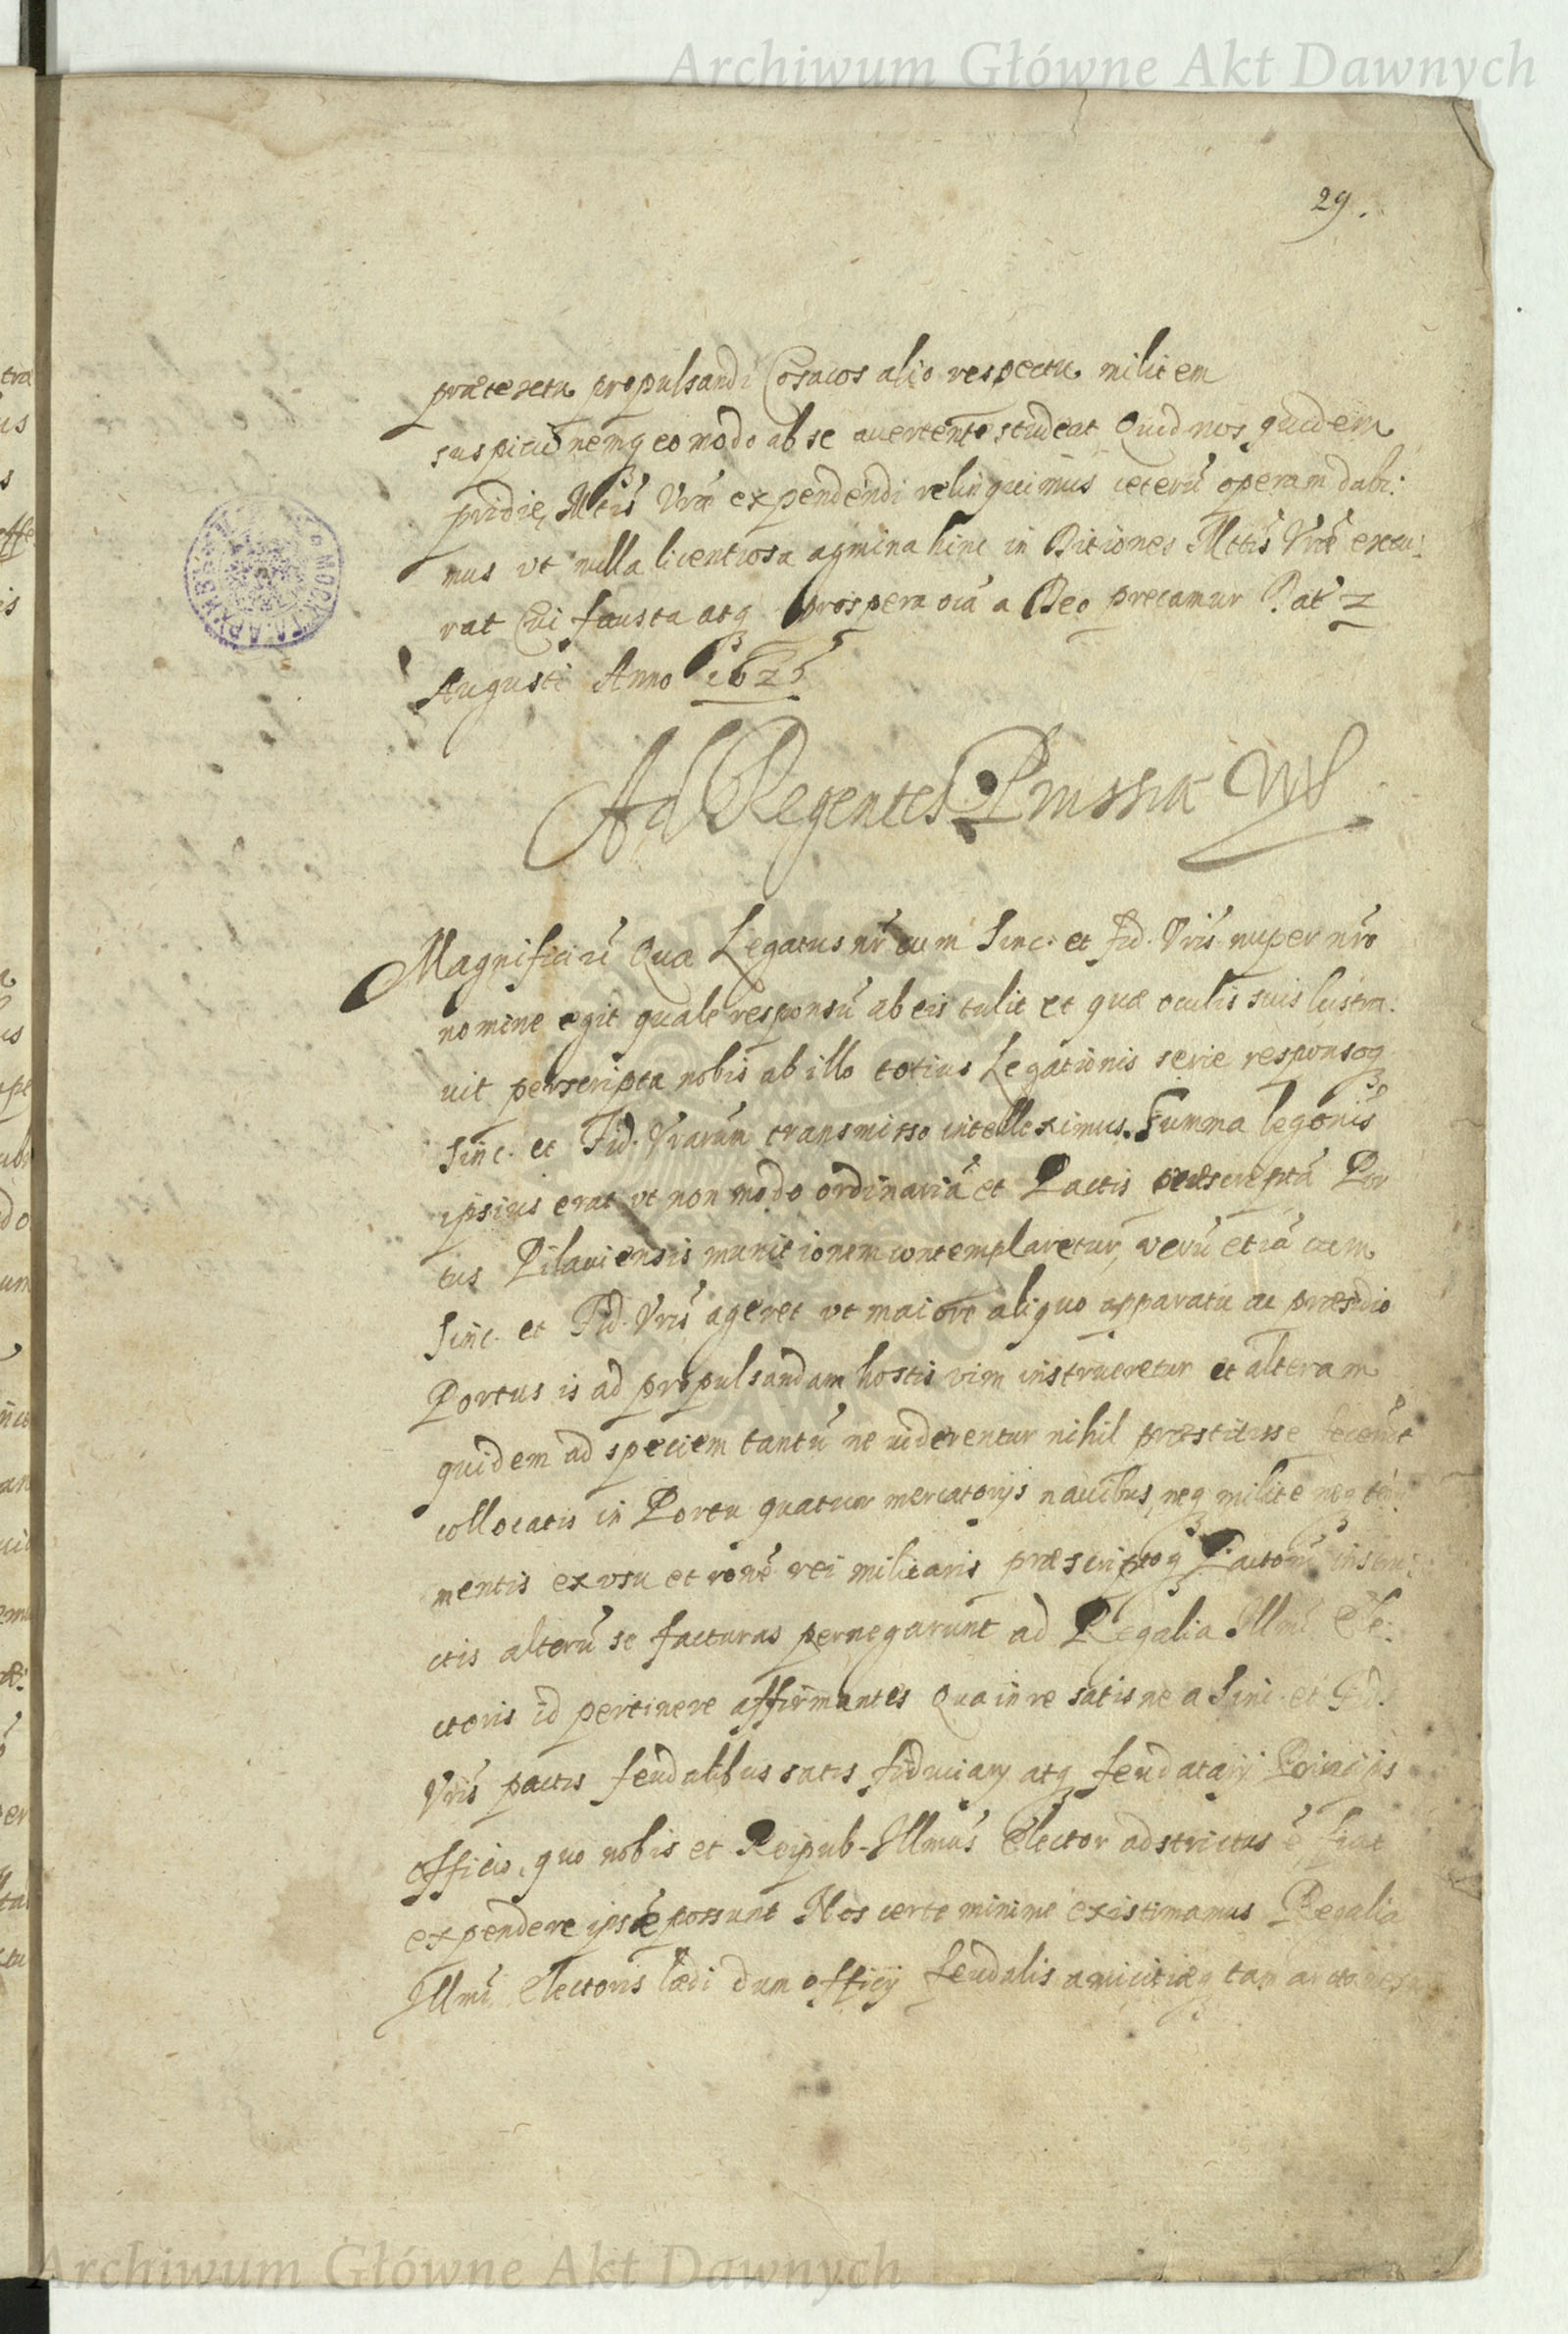 Archiwum Główne Akt Dawnych
29.
prætextu propulsandi Cosacos alio respectu militem
suspicionemq eo modo ab se avertente studeat Quid nos quidem
pridie Mtis Vræ expendendi relinquimus ceterū operam dabi:
mus vt nulla licentiosa agmina hinc in Ditiones Mttis Vræ excu:
rat Cui fausta atq prospera oīa a Deo precamur Dat 2
Augusti Anno 1625
Ad Regentes Prussiæ
Magnifici Quæ Legatus nr̄ cum Sinc. et Fid. Vrīs nuper nr̄o
nomine egit quale responsū ab eis tulit et quæ oculis suis lustra:
uit perscripta nobis ab illo totius Legationis serie responsoq
Sinc. et Fid. Vrarum transmisso intelleximus. Summa legōnis
ipsius erat vt non modo ordinariā et Pactis præscriptā Por
tus Pilauiensis munitionem contemplaretur, verū etiā cum
Sinc. et Fid. Vrīs ageret vt maiore aliquo apparatu ac præsidio
Portus is ad propulsandam hostis vim instrueretur et alteram
quidem ad speciem tantū ne uiderentur nihil præstitisse fecerūt
collocatis in Portu quatuor mercatorijs nauibus, neq milite neq
mentis ex vsu et rōne rei militaris præscriptoq Pactorū instru:
ctis alterū se facturas pernegarunt ad Regalia Illmi Ele:
ctoris id pertinere affirmantes Qua in re satisne a Sinc. et Fid.
Vrīs pactis feudalibus satis fiduciarij atq feudatarij Principis
officio, quo nobis et Reipub. Illmus Elector adstrictus ē fiat
expendere ipsæ possunt Nos certe minime existimamus Regalia
Illmi Electoris lædi dum officij feudalis amicitiæq tam arctæ
Archiwum Główne Akt Dawnych